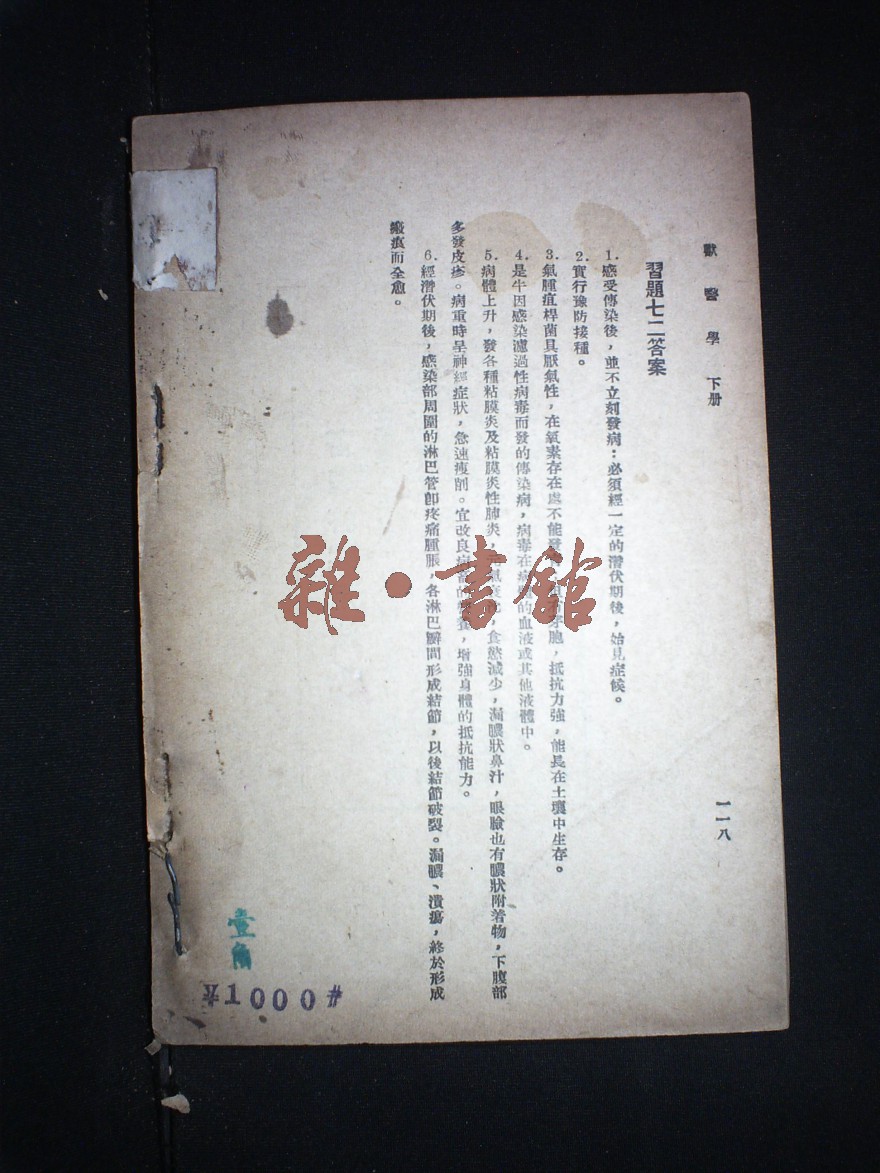 獸醫學 下册
一一八
習題七二答案
1.感受傳染後，並不立刻發病：必須經一定的潛伏期後，始見症候。
2.實行豫防接種。
3.氣腫疽桿菌具厭氣性，在氧素存在處不能發 胞，抵抗力強，能長在土壤中生存。
4.是牛因感染濾過性病毒而發的傳染病，病毒在 的血液或其他液體中。
5.病體上升，發各種粘膜炎及粘膜炎性肺炎， 食慾減少，漏膿狀鼻汁，眼瞼也有膿狀附着物，下腹部
多發皮疹。病重時呈神經症狀，急速瘦削。宜改良 的 養，增強身體的抵抗能力。
6.經潛伏期後，感染部周圍的淋巴管卽疼痛腫脹，各淋巴瓣間形成結節，以後結節破裂。漏膿、潰瘍，終於形成
瘢痕而全愈。
雜·書館
壹角
1000#